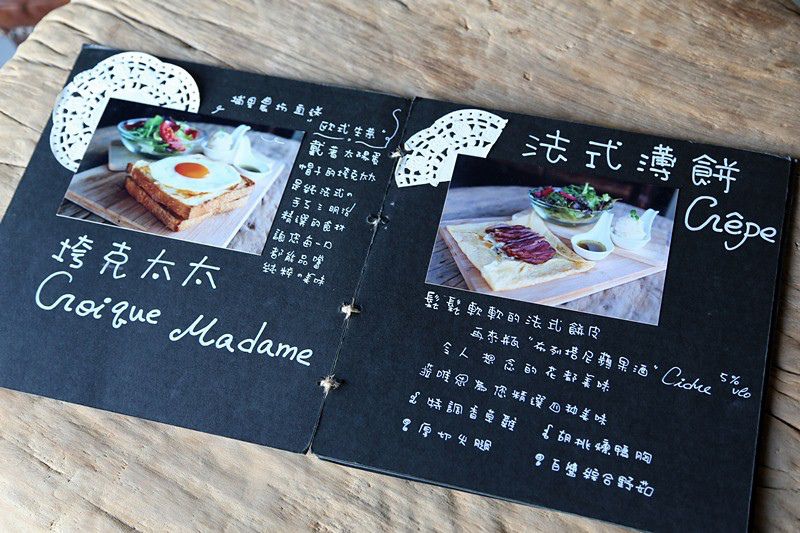 埔里農坊直送
歐式生煮
戴著太陽蛋
帽子的垮克太太
最純法式の
手工三明治
精選的食材
讓您每一口
都能品嚐
純粹の美味
垮克太太
Croique Madame
法式薄餅
Crêpe
鬆鬆軟軟的法式餅皮
再來瓶"布列塔尼蘋果酒" Cidre 5%
令人想念的花都美味
為您精選四種美味
特調香草雞
胡桃燻鴨胸
厚切火腿
百鹽綜合野菇